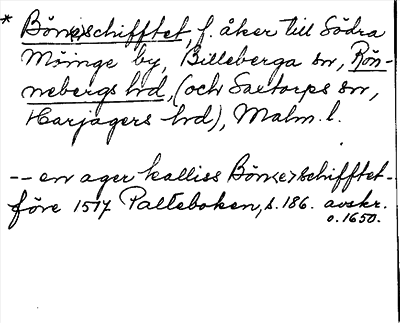 * Bön(e)schifftet, f. åker till Södra
Möinge by, Billeberga sn, Rön-
nebergs hd, (och Saxtorps sn,
Harjagers hd), Malm. l.
-- en ager kalliss Bön<e>schifftet -
före 1517 Palteboken, s. 186. avskr.
o. 1650.